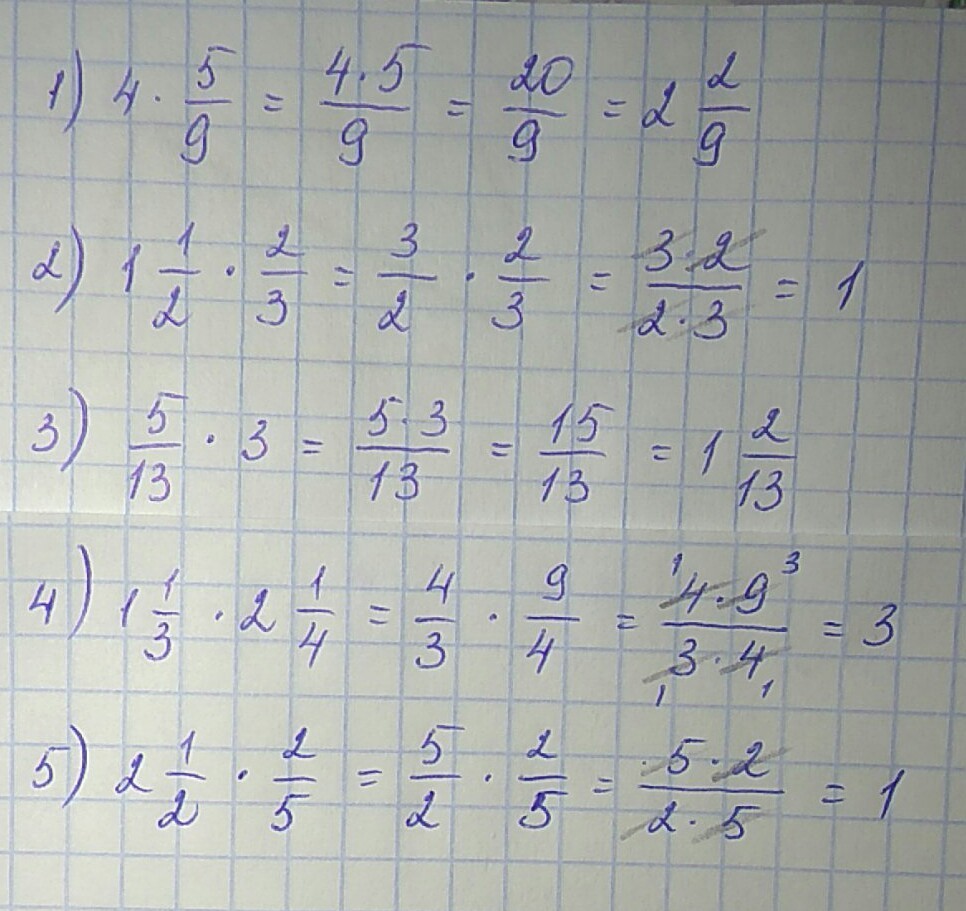 1) 4 · 5/9 = 4·5/9 = 20/9 = 2 2/9
2) 1 1/2 · 2/3 = 3/2 · 2/3 = 3·2/2·3 = 1
3) 5/13 · 3 = 5·3/13 = 15/13 = 1 2/13
4) 1 1/3 · 2 1/4 = 4/3 · 9/4 = ¹4·9³/₁3·4₁ = 3
5) 2 1/2 · 2/5 = 5/2 · 2/5 = 5·2/2·5 = 1